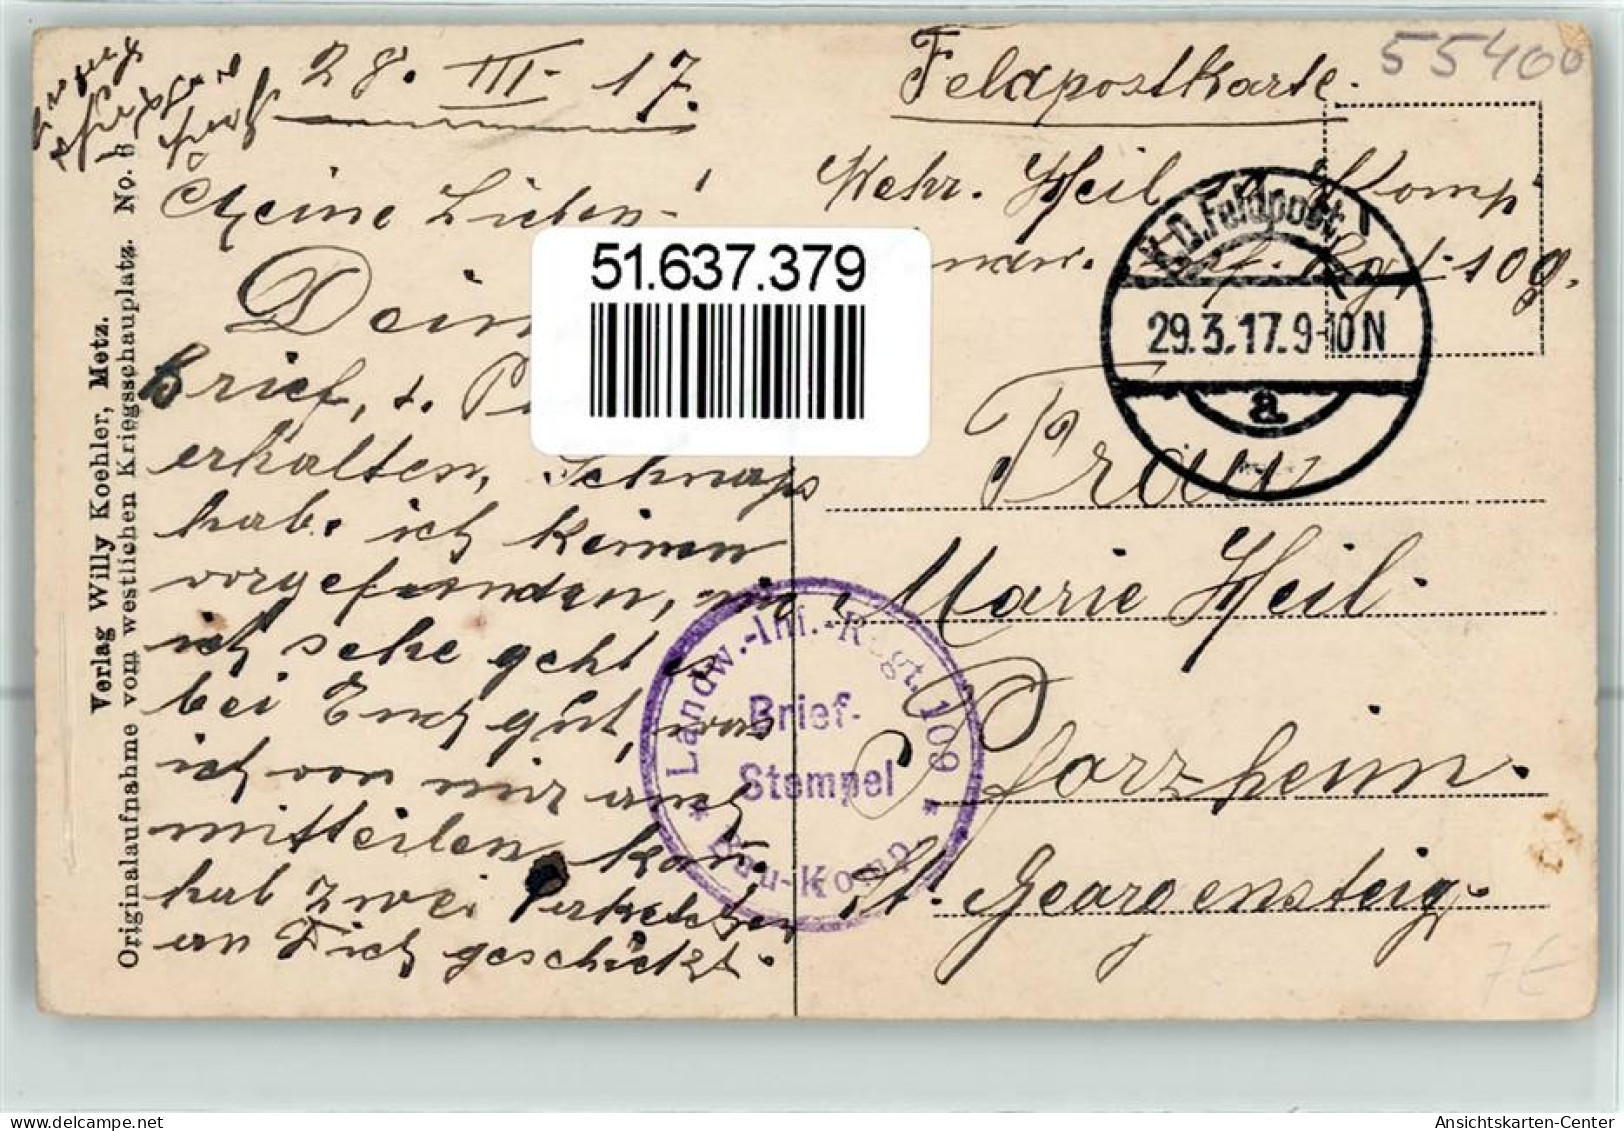 28. III. 17.
Feldpostkarte.
55400
Meine Lieben!
Wehr. Heil Komp
Landw. Inf. Rgt. 109.
K.D. Feldpost
29.3.17.9-10N
a
51.637.379
Brief, u.
erhalten, Schnaps
hab. ich keinen
vorgefunden,
ich sehe geht es
bei Euch gut, was
ich von mir auch
mitteilen kan.
hab zwei
an Dich geschickt.
Frau
Marie Heil.
Pforzheim.
St. Georgensteig.
Landw.-Inf.-Regt. 109
Brief-
Stempel
* Bau-Komp. *
Verlag Willy Koehler, Metz.
Originalaufnahme vom westlichen Kriegsschauplatz. No. 6
7€
delcampe.net
Ansichtskarten-Center